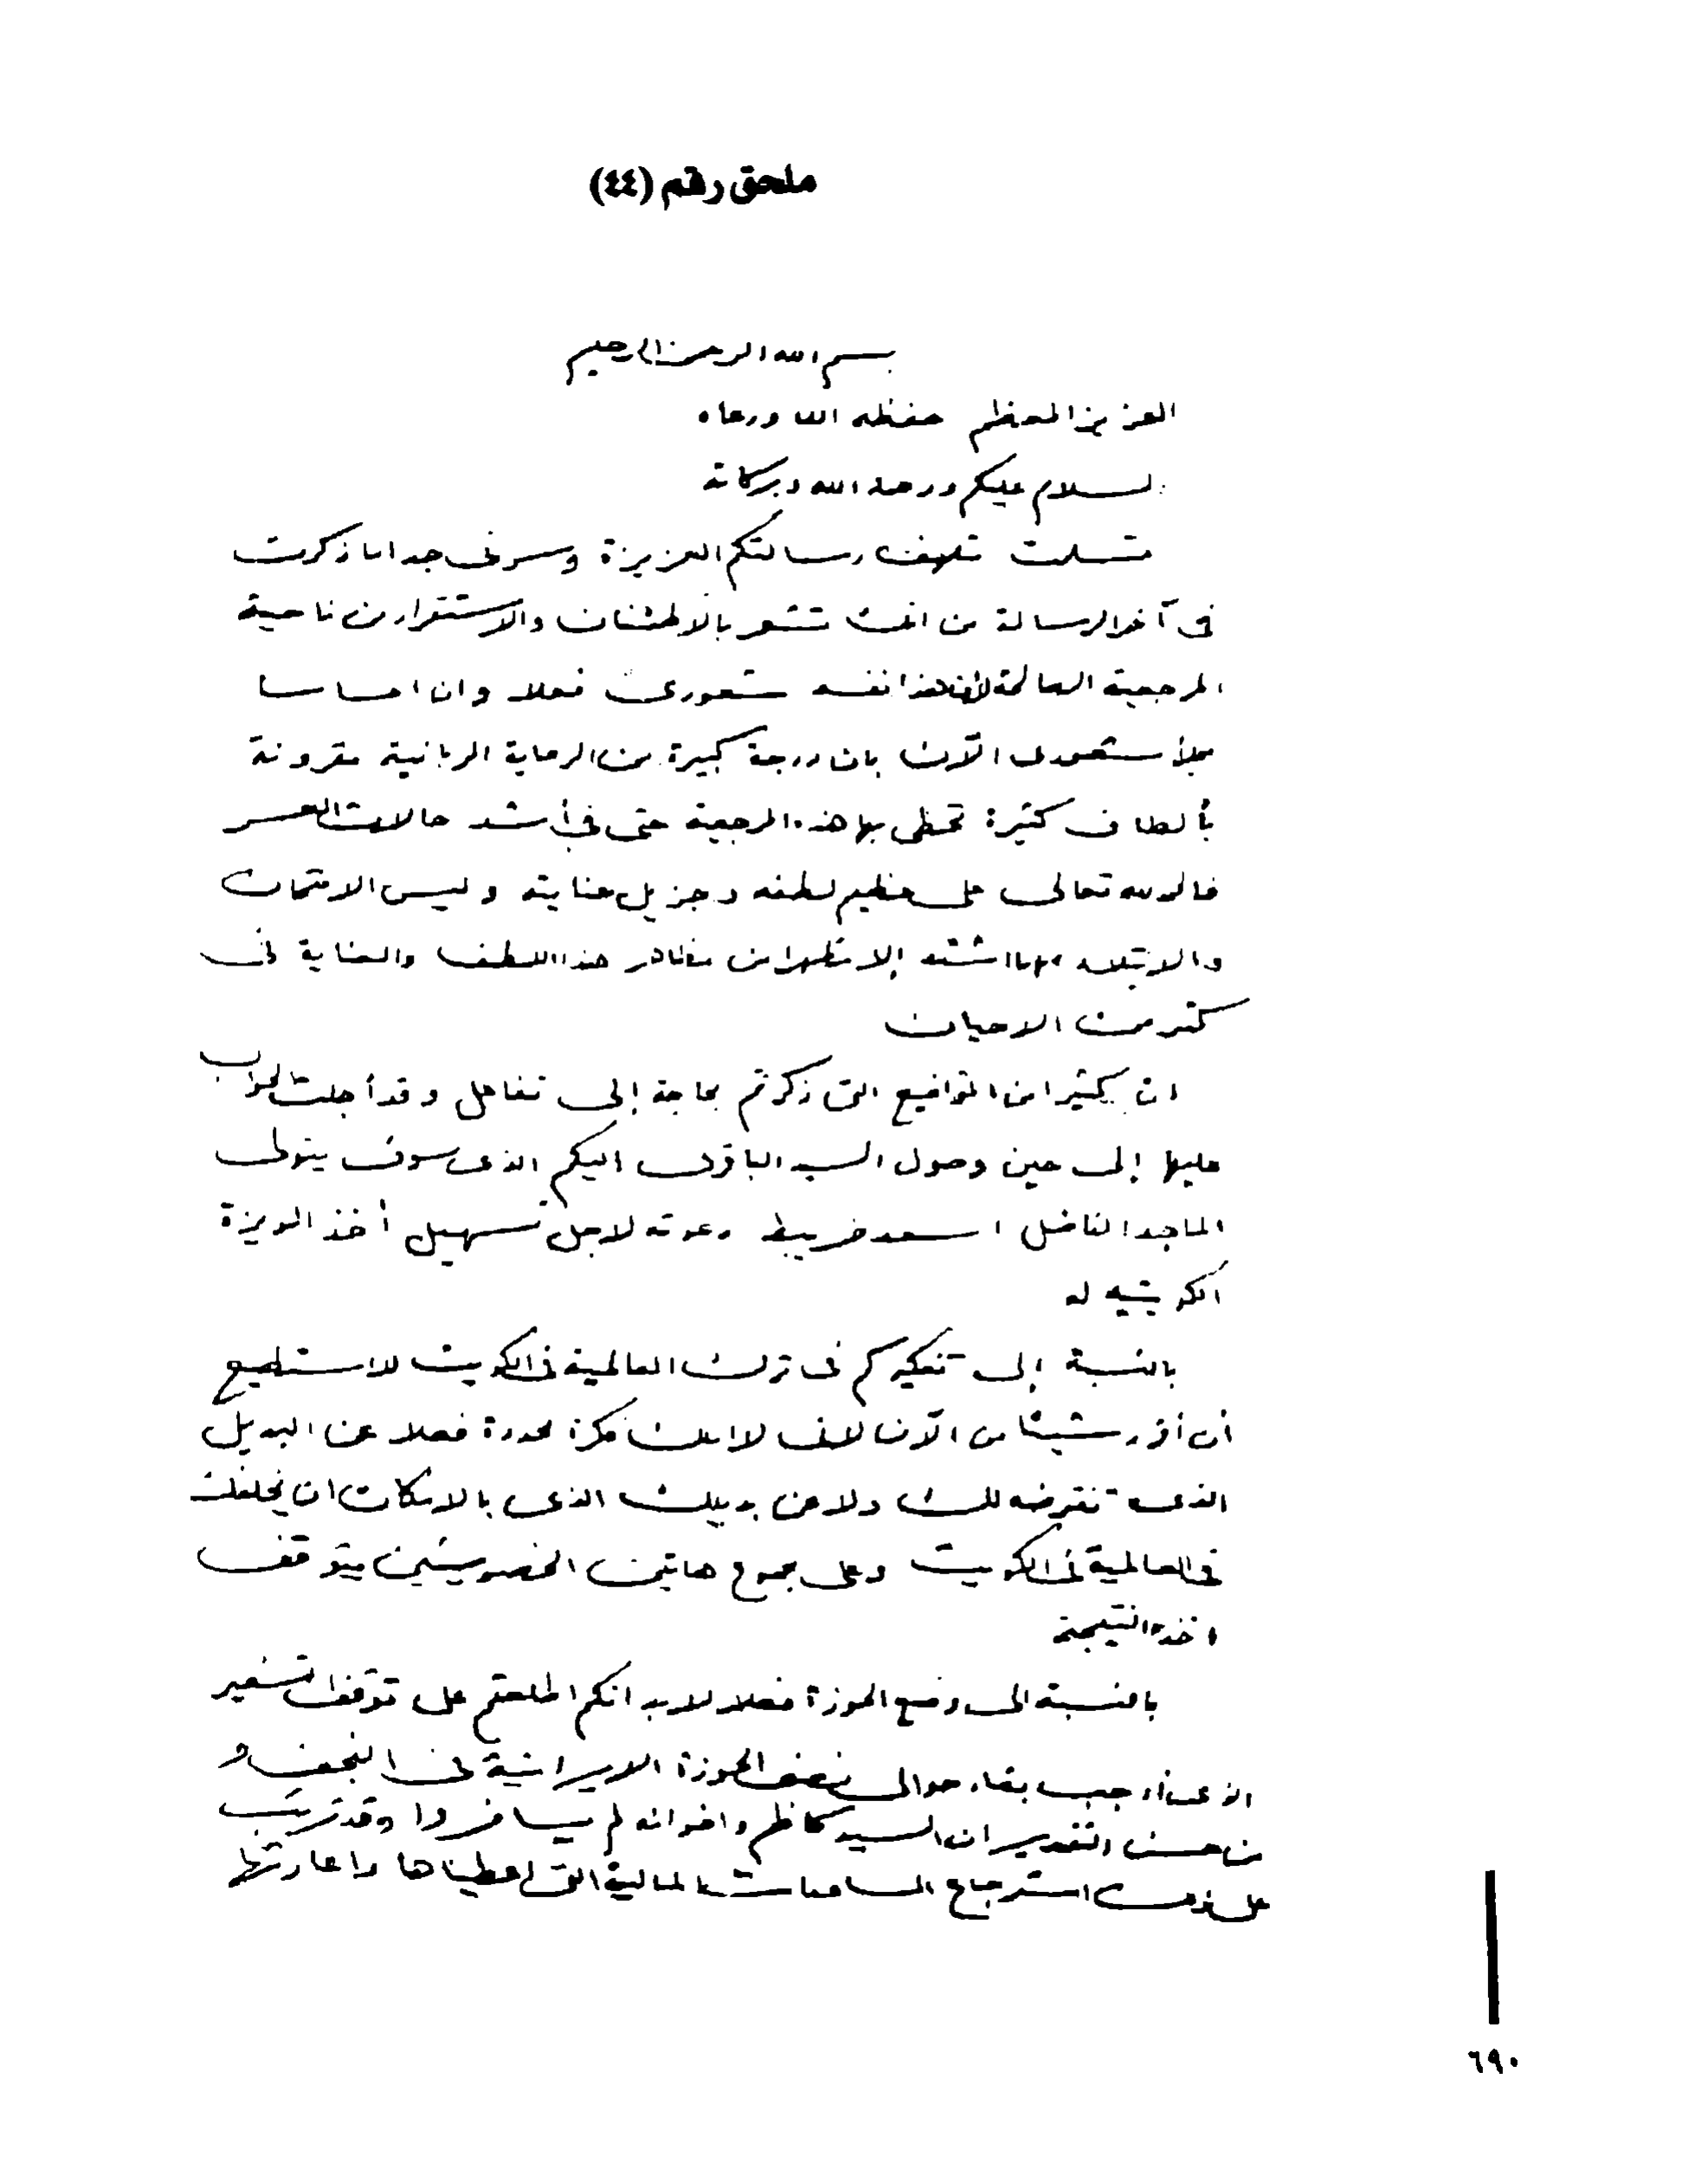 ملحق رقم (٤٤)
بسم الله الرحمن الرحيم
العزيز المعظم حفظه الله ورعاه
السلام عليكم ورحمة الله وبركاته
تسلمت بلهف رسالتكم العزيزة وسرني جدا ما ذكرت
في آخر الرسالة من انك تشعر بالاطمئنان والاستقرار من ناحية
المرجعية الصالحة لأن هذا نفسه شعوري فعلا وان احساسا
يملأ شعوري الآن بان درجة كبيرة من الرعاية الربانية مقرونة
بألطاف كثيرة تحظى بها هذه المرجعية حتى في أشد حالات العسر
فالحمد لله تعالى على عظيم لطفه وجزيل عنايته وليس الامتحان
والابتلاء مهما اشتد إلا مظهرا من مظاهر هذا اللطف والعناية في
كثير من الاحيان
ان كثيرا من المواضيع التي ذكرتم بحاجة إلى تفاعل وقد أجلت الجواب
عليها إلى حين وصول السيد الباقري اليكم الذي سوف يتولى
الماجد الفاضل اسعد خربيط دعوته لاجل تسهيل أخذ الويزة
الكويتية له
بالنسبة إلى تفكيركم في ترك العالمية في الكويت لا استطيع
أن أقرر شيئا من الآن لانني لا املك فكرة محددة فعلا عن البديل
الذي تفترضه لك ولا عن بديلك الذي بالامكان ان يخلفك
في العالمية في الكويت وعلى مجموع هاتين الخصوصيتين يتوقف
اخذ النتيجة
بالنسبة الى وضع الحوزة فعلا لابد انكم اطلعتم على توقف التسفير
الذي أوجب بقاء حوالي نصف الحوزة الايرانية في النجف و
من حسن التقدير ان السيد كاظم واخوانه لم يسافروا وقد ترتب
على ذلك استرجاع المساعدات المالية التي اعطيناها واعادتها
٦٩٠